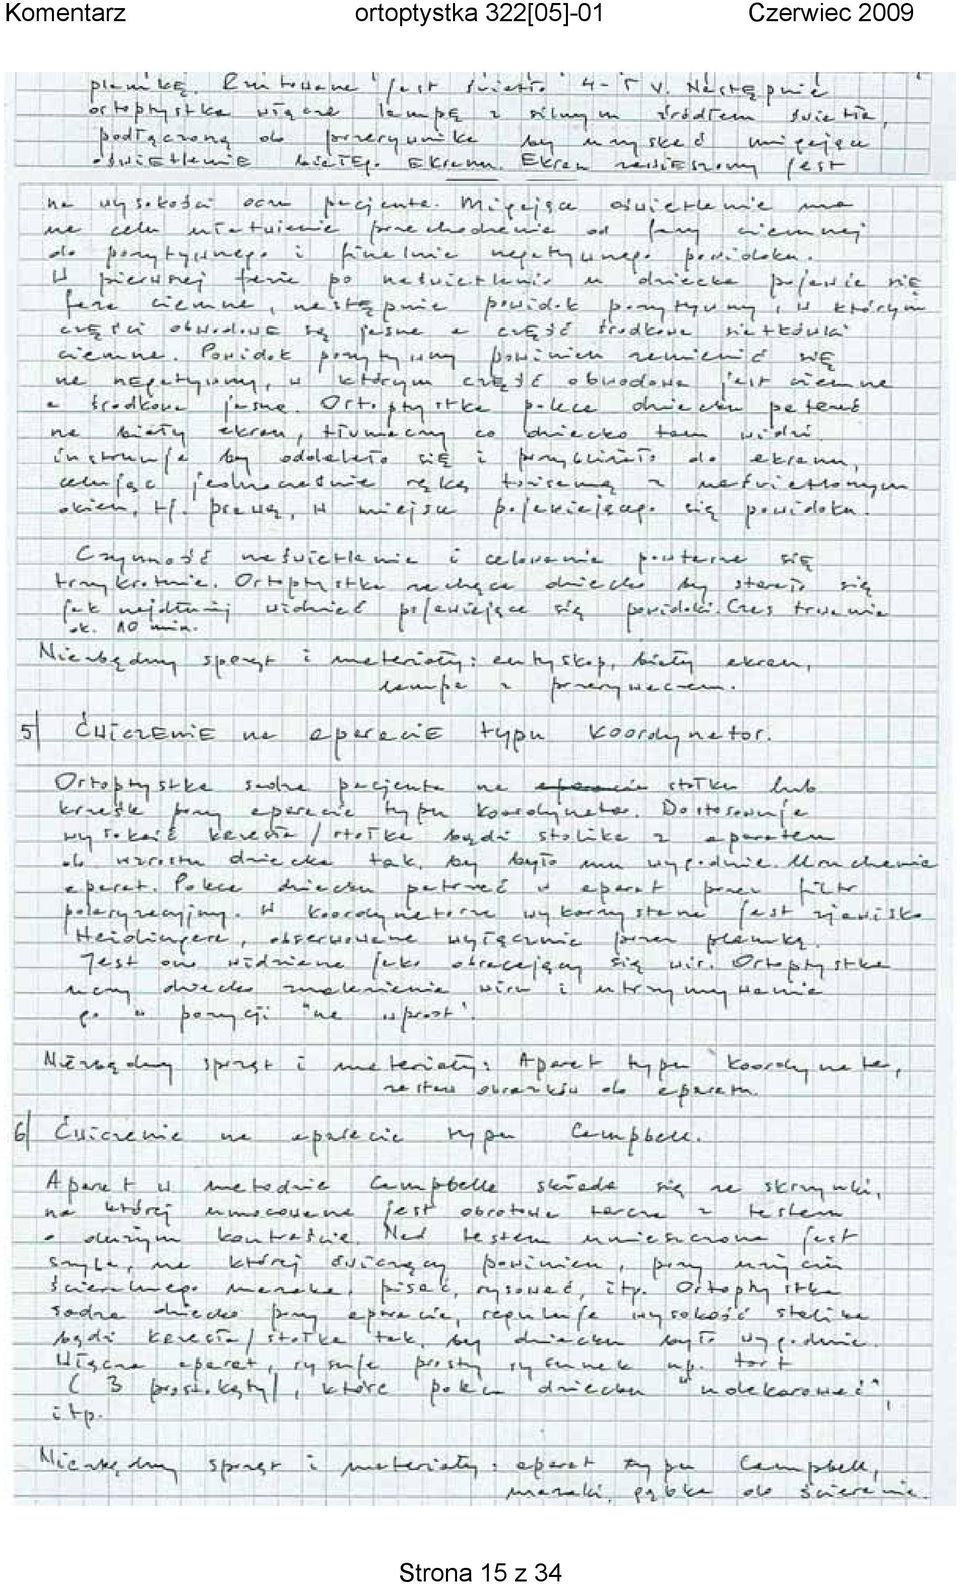 Komentarz ortoptystka 322[05]-01 Czerwiec 2009
plamkę. Emitowane jest światło 4-5 V. Następnie
ortoptystka włącza lampę z silnym źródłem światła,
podłączoną do przerywnika by uzyskać migające
oświetlenie białego ekranu. Ekran zawieszony jest
na wysokości oczu pacjenta. Migające oświetlenie ma
na celu ułatwienie przechodzenie od fazy ciemnej
do pozytywnego i finalnie negatywnego powidoku.
W pierwszej fazie po naświetleniu u dziecka pojawia się
faza ciemna, następnie powidok pozytywny, w którym
części obwodowe są jasne a część środkowa siatkówki
ciemne. Powidok pozytywny powinien zamienić się
na negatywny, w którym część obwodowa jest ciemna
a środkowa jasna. Ortoptystka poleca dziecku patrzeć
na biały ekran, tłumaczy co dziecko tam widzi
instruuje by oddalało się i przybliżało do ekranu,
celując jednocześnie ręką tożsamą z naświetlonym
okiem, tj. prawą, w miejsce pojawiającego się powidoku.
Czynność naświetlania i celowania powtarza się
trzykrotnie. Ortoptystka zachęca dziecko by starało się
jak najdłużej widzieć pojawiające się powidoki. Czas trwania
ok. 10 min.
Niezbędny sprzęt i materiały: eutyskop, biały ekran,
lampa z przerywaczem.
5) Ćwiczenie na aparacie typu Koordynator.
Ortoptystka sadza pacjenta na stołku lub
krześle przy aparacie typu Koordynator. Dostosowuje
wysokość krzesła / stołka bądź stolika z aparatem
do wzrostu dziecka tak, by było mu wygodnie. Uruchamia
aparat. Poleca dziecku patrzeć w aparat przez filtr
polaryzacyjny. W koordynatorze wykorzystane jest zjawisko
Heidingera, obserwowane wyłącznie przez plamkę.
Jest ono widziane jako obracający się wir. Ortoptystka
uczy dziecko znalezienia wiru i utrzymywania
go w pozycji "na wprost".
Niezbędny sprzęt i materiały: Aparat typu Koordynator,
zestaw obrazków do aparatu.
6) Ćwiczenie na aparacie typu Campbell.
Aparat w metodzie Campbella składa się ze skrzynki,
na której umocowana jest obrotowa tarcza z testem
o dużym kontraście. Nad testem umieszczona jest
szyba, na której ćwiczący powinien, przy użyciu
ścieralnego mazaka, pisać, rysować, itp. Ortoptystka
sadza dziecko przy aparacie, reguluje wysokość stolika
bądź krzesła / stołka tak, by dziecku było wygodnie.
Włącza aparat, rysuje prosty rysunek np. tort
( 3 prostokąty), które poleca dziecku "udekorować",
itp.
Niezbędny sprzęt i materiały: aparat typu Campbell,
mazaki, gąbka do ścierania.
Strona 15 z 34